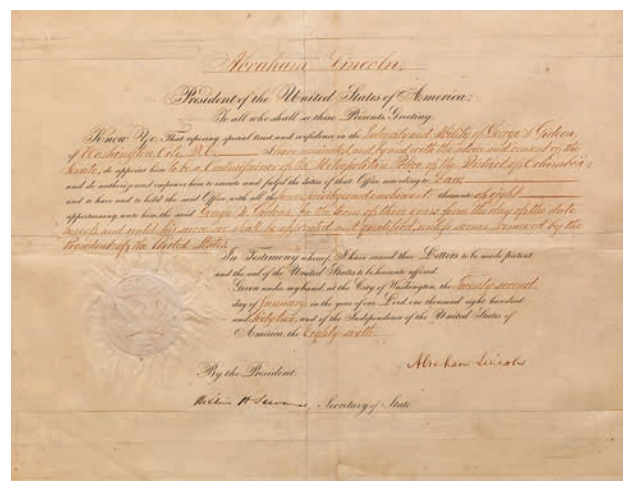 Abraham Lincoln.
President of the United States of America;
To all who shall see these Presents, Greeting.
Know Ye, That reposing special trust and confidence in the Integrity and Ability of George S. Gideon,
of Washington City D.C. I have nominated and by and with the advice and consent of the
Senate, do appoint him to be a Commissioner of the Metropolitan Police of the District of Columbia;
and do authorize and empower him to execute and fulfil the duties of that Office according to Law
and to have and to hold the said Office, with all the privileges and emoluments thereunto of right
appertaining, unto him, the said George S. Gideon, for the term of three years from the day of the date
hereof, and until his successor shall be appointed and qualified, unless sooner removed by the
President of the United States.
In Testimony whereof, I have caused these Letters to be made patent
and the seal of the United States to be hereunto affixed.
Given under my hand, at the City of Washington, the Twenty second
day of January in the year of our Lord, one thousand eight hundred
and Sixty two, and of the Independence of the United States of
America, the Eighty sixth.
Abraham Lincoln
By the President:
William H Seward, Secretary of State.